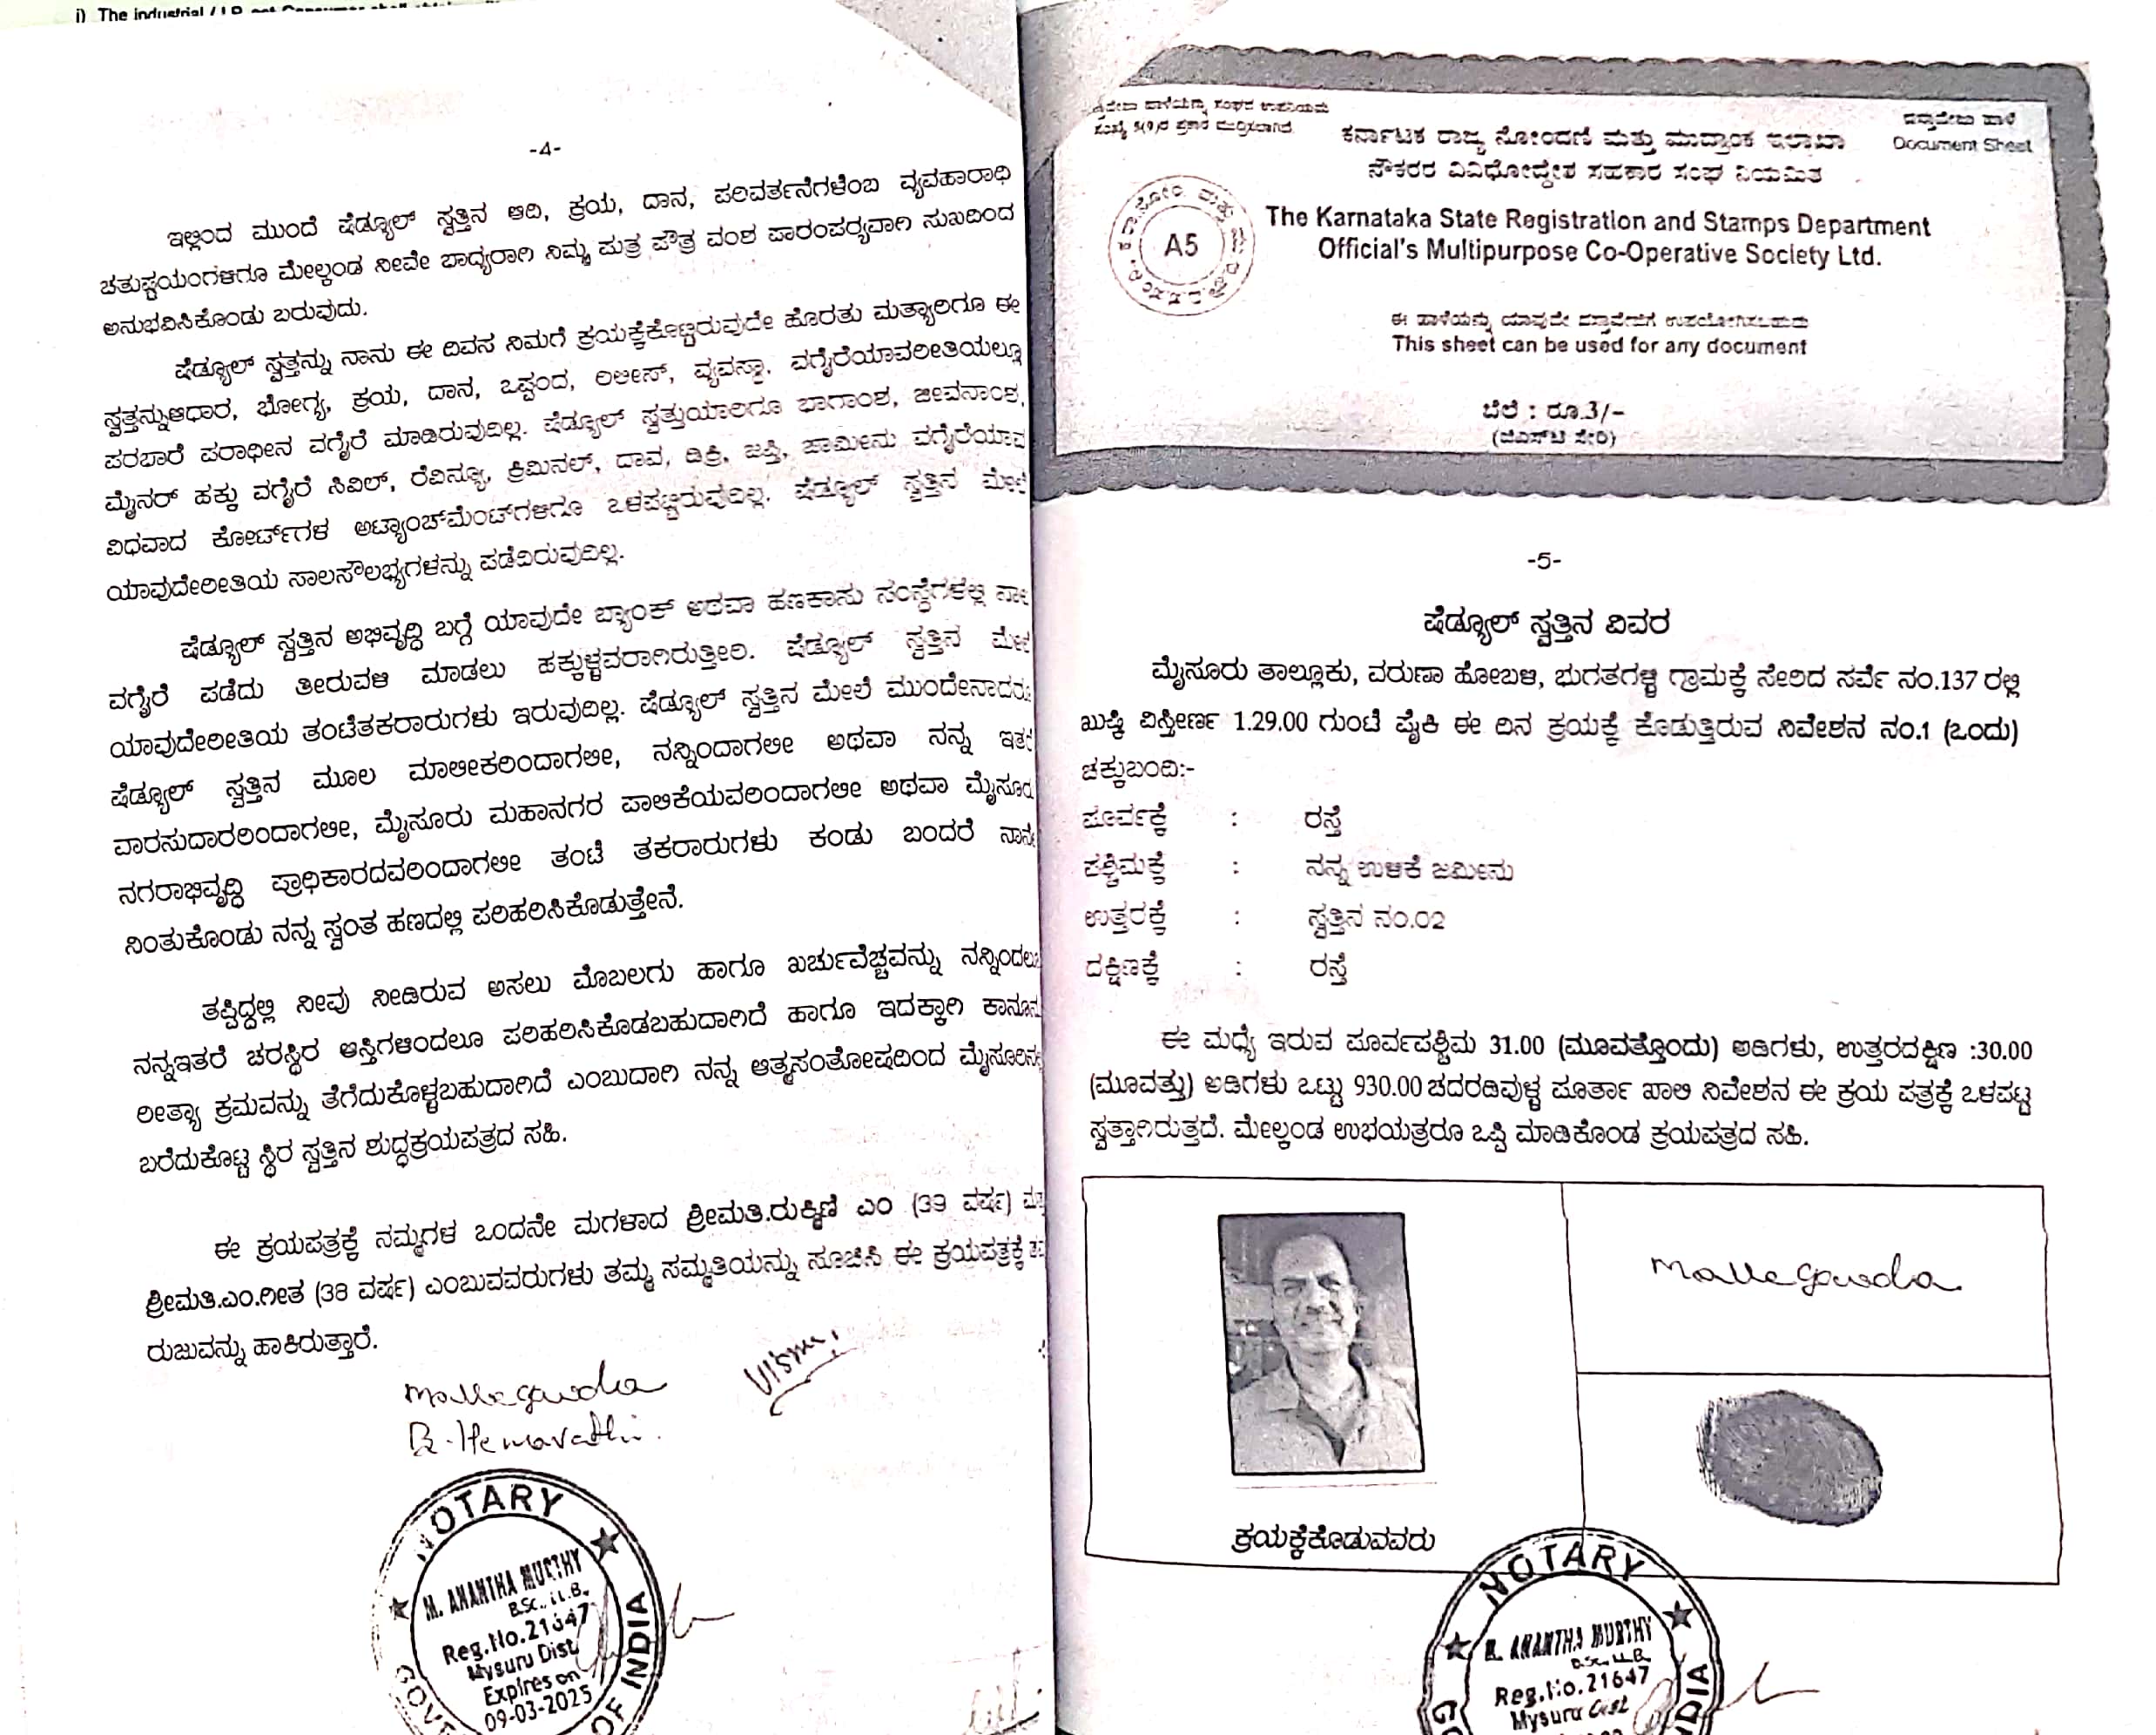 i) The industrial / I.P. set Consumer shall obtain
-4-
ಇಲ್ಲಿಂದ ಮುಂದೆ ಷೆಡ್ಯೂಲ್ ಸ್ವತ್ತಿನ ಆದಿ, ಕ್ರಯ, ದಾನ, ಪರಿವರ್ತನೆಗಳೆಂಬ ವ್ಯವಹಾರಾಧಿ
ಚತುಷ್ಟಯಂಗಳಿಗೂ ಮೇಲ್ಕಂಡ ನೀವೇ ಬಾದ್ಯರಾಗಿ ನಿಮ್ಮ ಪುತ್ರ ಪೌತ್ರ ವಂಶ ಪಾರಂಪರ್‍ಯವಾಗಿ ಸುಖದಿಂದ
ಅನುಭವಿಸಿಕೊಂಡು ಬರುವುದು.
ಷೆಡ್ಯೂಲ್ ಸ್ವತ್ತನ್ನು ನಾನು ಈ ದಿವಸ ನಿಮಗೆ ಕ್ರಯಕ್ಕೆಕೊಟ್ಟಿರುವುದೇ ಹೊರತು ಮತ್ಯಾರಿಗೂ ಈ
ಸ್ವತ್ತನ್ನುಆಧಾರ, ಭೋಗ್ಯ, ಕ್ರಯ, ದಾನ, ಒಪ್ಪಂದ, ರಿಲೀಸ್, ವ್ಯವಸ್ಥಾ, ವಗೈರೆಯಾವರೀತಿಯಲ್ಲೂ
ಪರಭಾರೆ ಪರಾಧೀನ ವಗೈರೆ ಮಾಡಿರುವುದಿಲ್ಲ. ಷೆಡ್ಯೂಲ್ ಸ್ವತ್ತುಯಾರಿಗೂ ಭಾಗಾಂಶ, ಜೀವನಾಂಶ,
ಮೈನರ್ ಹಕ್ಕು ವಗೈರೆ ಸಿವಿಲ್, ರೆವಿನ್ಯೂ, ಕ್ರಿಮಿನಲ್, ದಾವ, ಡಿಕ್ರಿ, ಜಪ್ತಿ, ಜಾಮೀನು ವಗೈರೆಯಾವ
ವಿಧವಾದ ಕೋರ್ಟ್‌ಗಳ ಅಟ್ಯಾಂಚ್‌ಮೆಂಟ್‌ಗಳಿಗೂ ಒಳಪಟ್ಟಿರುವುದಿಲ್ಲ. ಷೆಡ್ಯೂಲ್ ಸ್ವತ್ತಿನ ಮೇಲೆ
ಯಾವುದೇರೀತಿಯ ಸಾಲಸೌಲಭ್ಯಗಳನ್ನು ಪಡೆದಿರುವುದಿಲ್ಲ.
ಷೆಡ್ಯೂಲ್ ಸ್ವತ್ತಿನ ಅಭಿವೃದ್ಧಿ ಬಗ್ಗೆ ಯಾವುದೇ ಬ್ಯಾಂಕ್ ಅಥವಾ ಹಣಕಾಸು ಸಂಸ್ಥೆಗಳಲ್ಲಿ
ವಗೈರೆ ಪಡೆದು ತೀರುವಳಿ ಮಾಡಲು ಹಕ್ಕುಳ್ಳವರಾಗಿರುತ್ತೀರಿ. ಷೆಡ್ಯೂಲ್ ಸ್ವತ್ತಿನ ಮೇಲೆ
ಯಾವುದೇರೀತಿಯ ತಂಟೆತಕರಾರುಗಳು ಇರುವುದಿಲ್ಲ. ಷೆಡ್ಯೂಲ್ ಸ್ವತ್ತಿನ ಮೇಲೆ ಮುಂದೇನಾದರು
ಷೆಡ್ಯೂಲ್ ಸ್ವತ್ತಿನ ಮೂಲ ಮಾಲೀಕರಿಂದಾಗಲೀ, ನನ್ನಿಂದಾಗಲೀ ಅಥವಾ ನನ್ನ ಇತರೆ
ವಾರಸುದಾರರಿಂದಾಗಲೀ, ಮೈಸೂರು ಮಹಾನಗರ ಪಾಲಿಕೆಯವರಿಂದಾಗಲೀ ಅಥವಾ ಮೈಸೂರು
ನಗರಾಭಿವೃದ್ಧಿ ಪ್ರಾಧಿಕಾರದವರಿಂದಾಗಲೀ ತಂಟೆ ತಕರಾರುಗಳು ಕಂಡು ಬಂದರೆ ನಾನೇ
ನಿಂತುಕೊಂಡು ನನ್ನ ಸ್ವಂತ ಹಣದಲ್ಲಿ ಪರಿಹರಿಸಿಕೊಡುತ್ತೇನೆ.
ತಪ್ಪಿದ್ದಲ್ಲಿ ನೀವು ನೀಡಿರುವ ಅಸಲು ಮೊಬಲಗು ಹಾಗೂ ಖರ್ಚುವೆಚ್ಚವನ್ನು ನನ್ನಿಂದಲೂ
ನನ್ನಇತರೆ ಚರಸ್ಥಿರ ಆಸ್ತಿಗಳಿಂದಲೂ ಪರಿಹರಿಸಿಕೊಡಬಹುದಾಗಿದೆ ಹಾಗೂ ಇದಕ್ಕಾಗಿ ಕಾನೂನು
ರೀತ್ಯಾ ಕ್ರಮವನ್ನು ತೆಗೆದುಕೊಳ್ಳಬಹುದಾಗಿದೆ ಎಂಬುದಾಗಿ ನನ್ನ ಆತ್ಮಸಂತೋಷದಿಂದ ಮೈಸೂರಿನಲ್ಲಿ
ಬರೆದುಕೊಟ್ಟ ಸ್ಥಿರ ಸ್ವತ್ತಿನ ಶುದ್ಧಕ್ರಯಪತ್ರದ ಸಹಿ.
ಈ ಕ್ರಯಪತ್ರಕ್ಕೆ ನಮ್ಮಗಳ ಒಂದನೇ ಮಗಳಾದ ಶ್ರೀಮತಿ.ರುಕ್ಮಿಣಿ ಎಂ (39 ವರ್ಷ)
ಶ್ರೀಮತಿ.ಎಂ.ಗೀತ (38 ವರ್ಷ) ಎಂಬುವವರುಗಳು ತಮ್ಮ ಸಮ್ಮತಿಯನ್ನು ಸೂಚಿಸಿ ಈ ಕ್ರಯಪತ್ರಕ್ಕೆ
ರುಜುವನ್ನು ಹಾಕಿರುತ್ತಾರೆ.
Mallegowda
B. Hemavathi.
NOTARY
M. ANANTHA MURTHY
B.Sc., L.L.B.
Reg.No.21647
Mysuru Dist
Expires on
09-03-2025
OF INDIA
ದಸ್ತಾವೇಜು ಹಾಳೆ
Document Sheet
ಕರ್ನಾಟಕ ರಾಜ್ಯ ನೋಂದಣಿ ಮತ್ತು ಮುದ್ರಾಂಕ ಇಲಾಖಾ
ನೌಕರರ ವಿವಿಧೋದ್ದೇಶ ಸಹಕಾರ ಸಂಘ ನಿಯಮಿತ
A5
The Karnataka State Registration and Stamps Department
Official's Multipurpose Co-Operative Society Ltd.
ಈ ಹಾಳೆಯನ್ನು ಯಾವುದೇ ದಸ್ತಾವೇಜಿಗೆ ಉಪಯೋಗಿಸಬಹುದು
This sheet can be used for any document
ಬೆಲೆ : ರೂ.3/-
(ಜಿಎಸ್‌ಟಿ ಸೇರಿ)
-5-
ಷೆಡ್ಯೂಲ್ ಸ್ವತ್ತಿನ ವಿವರ
ಮೈಸೂರು ತಾಲ್ಲೂಕು, ವರುಣಾ ಹೋಬಳಿ, ಭುಗತಗಳ್ಳಿ ಗ್ರಾಮಕ್ಕೆ ಸೇರಿದ ಸರ್ವೆ ನಂ.137 ರಲ್ಲಿ
ಖುಷ್ಕಿ ವಿಸ್ತೀರ್ಣ 1.29.00 ಗುಂಟೆ ಪೈಕಿ ಈ ದಿನ ಕ್ರಯಕ್ಕೆ ಕೊಡುತ್ತಿರುವ ನಿವೇಶನ ನಂ.1 (ಒಂದು)
ಚಕ್ಕುಬಂದಿ:-
ಪೂರ್ವಕ್ಕೆ : ರಸ್ತೆ
ಪಶ್ಚಿಮಕ್ಕೆ : ನನ್ನ ಉಳಿಕೆ ಜಮೀನು
ಉತ್ತರಕ್ಕೆ : ಸ್ವತ್ತಿನ ನಂ.02
ದಕ್ಷಿಣಕ್ಕೆ : ರಸ್ತೆ
ಈ ಮಧ್ಯೆ ಇರುವ ಪೂರ್ವಪಶ್ಚಿಮ 31.00 (ಮೂವತ್ತೊಂದು) ಅಡಿಗಳು, ಉತ್ತರದಕ್ಷಿಣ :30.00
(ಮೂವತ್ತು) ಅಡಿಗಳು ಒಟ್ಟು 930.00 ಚದರಡಿವುಳ್ಳ ಪೂರ್ತಾ ಖಾಲಿ ನಿವೇಶನ ಈ ಕ್ರಯ ಪತ್ರಕ್ಕೆ ಒಳಪಟ್ಟ
ಸ್ವತ್ತಾಗಿರುತ್ತದೆ. ಮೇಲ್ಕಂಡ ಉಭಯತ್ರರೂ ಒಪ್ಪಿ ಮಾಡಿಕೊಂಡ ಕ್ರಯಪತ್ರದ ಸಹಿ.
Mallegowda
ಕ್ರಯಕ್ಕೆಕೊಡುವವರು
NOTARY
M. ANANTHA MURTHY
B.Sc., L.L.B.
Reg.No.21647
Mysuru Dist